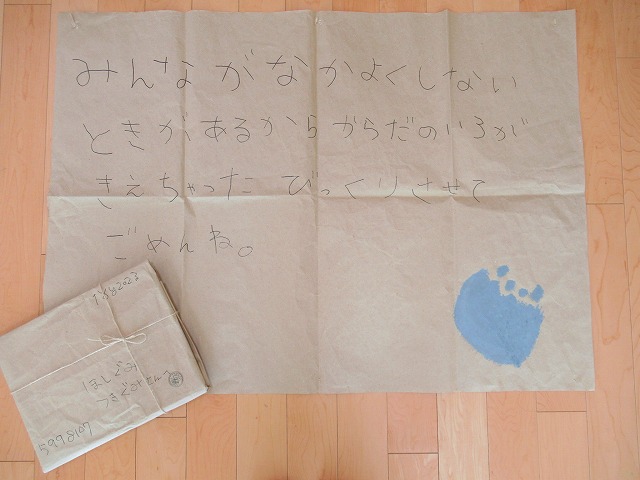 みんながなかよくしない
ときがあるからからだのいろが
きえちゃったびっくりさせて
ごめんね。
ほしぐみ
つきぐみさんへ
5998107